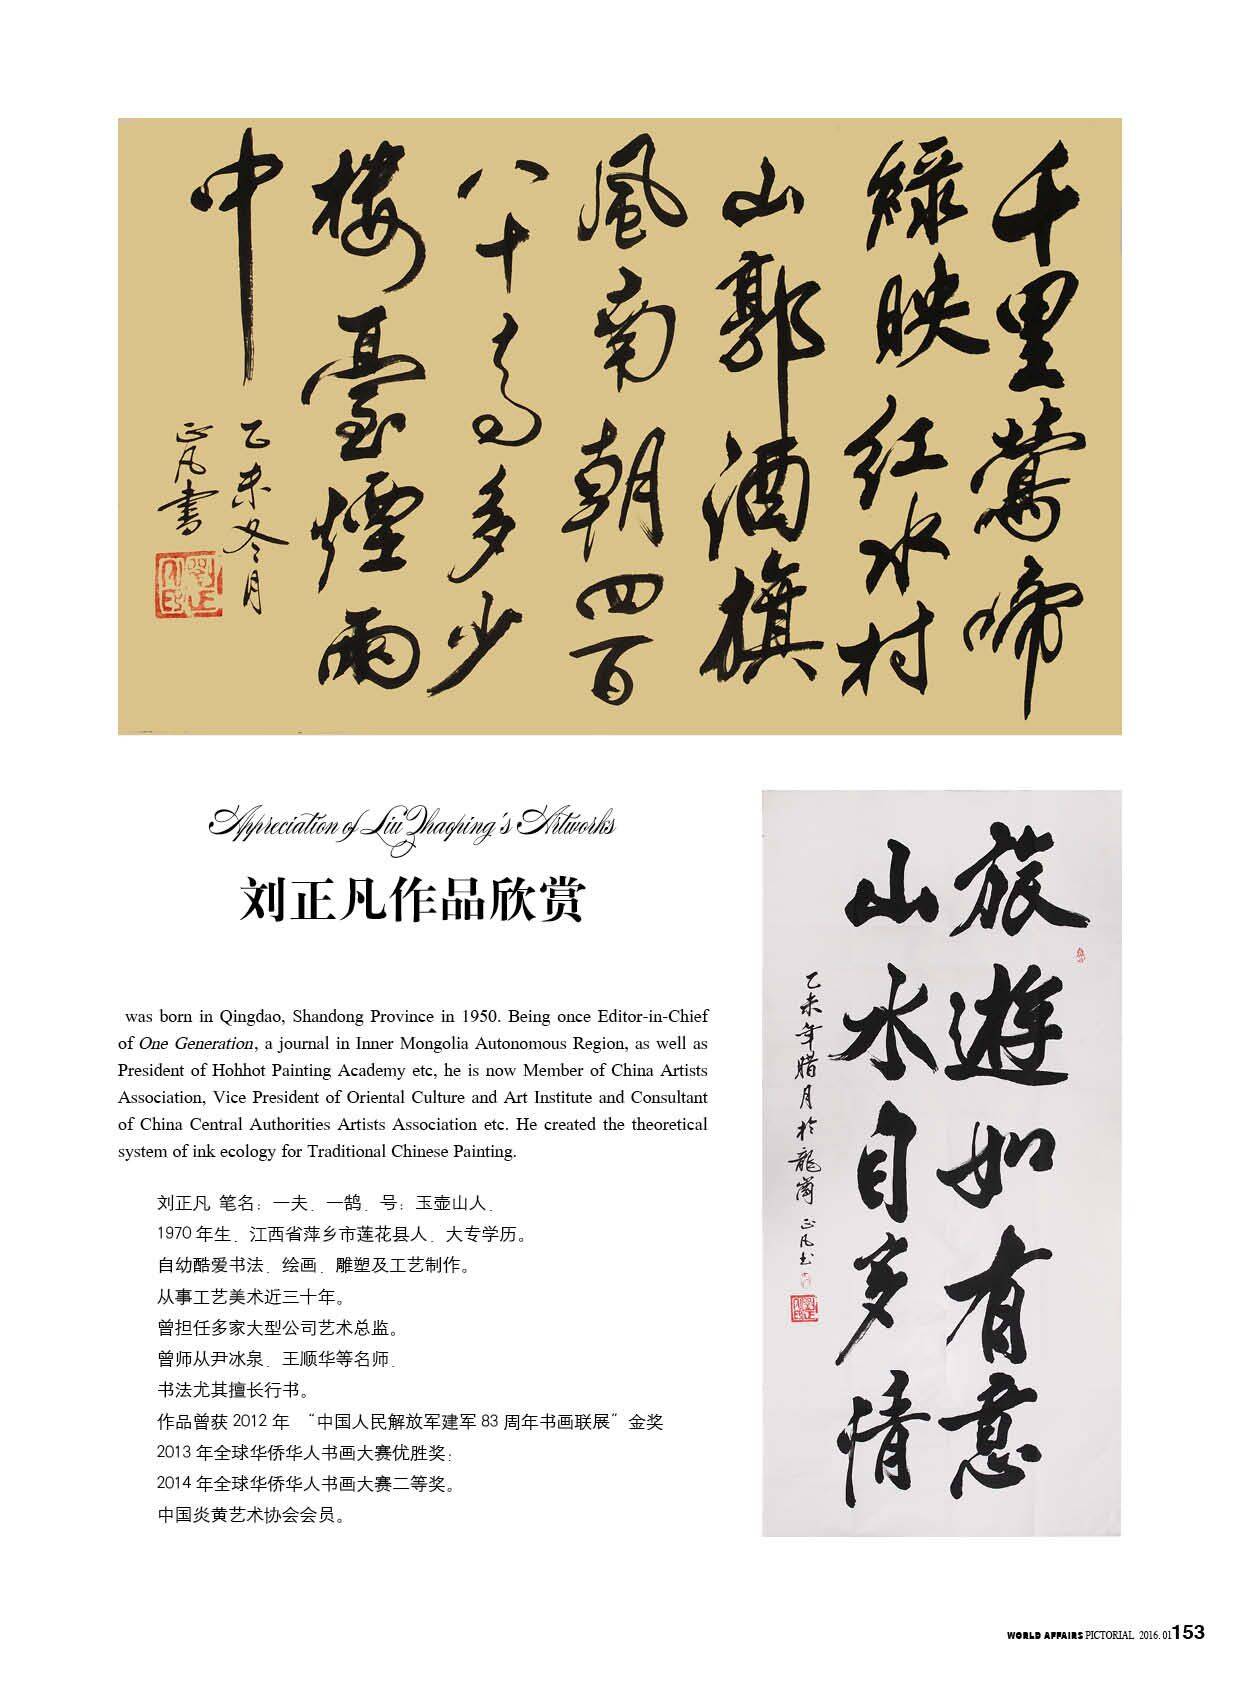 千里鶯啼
緑映红水村
山郭酒旗
風南朝四百
八十寺多少
樓臺煙雨
中
乙未冬月
正凡書
Appreciation of Liu Zhaoping's Artworks
刘正凡作品欣赏
was born in Qingdao, Shandong Province in 1950. Being once Editor-in-Chief
of One Generation, a journal in Inner Mongolia Autonomous Region, as well as
President of Hohhot Painting Academy etc, he is now Member of China Artists
Association, Vice President of Oriental Culture and Art Institute and Consultant
of China Central Authorities Artists Association etc. He created the theoretical
system of ink ecology for Traditional Chinese Painting.
刘正凡 笔名：一夫、一鹄，号：玉壶山人，
1970 年生，江西省萍乡市莲花县人，大专学历。
自幼酷爱书法、绘画、雕塑及工艺制作。
从事工艺美术近三十年。
曾担任多家大型公司艺术总监。
曾师从尹冰泉、王顺华等名师，
书法尤其擅长行书。
作品曾获 2012 年 “中国人民解放军建军 83 周年书画联展” 金奖
2013 年全球华侨华人书画大赛优胜奖；
2014 年全球华侨华人书画大赛二等奖。
中国炎黄艺术协会会员。
旅遊如有意
山水自多情
乙未年腊月於龍崗 正凡书
WORLD AFFAIRS PICTORIAL 2016. 01 153